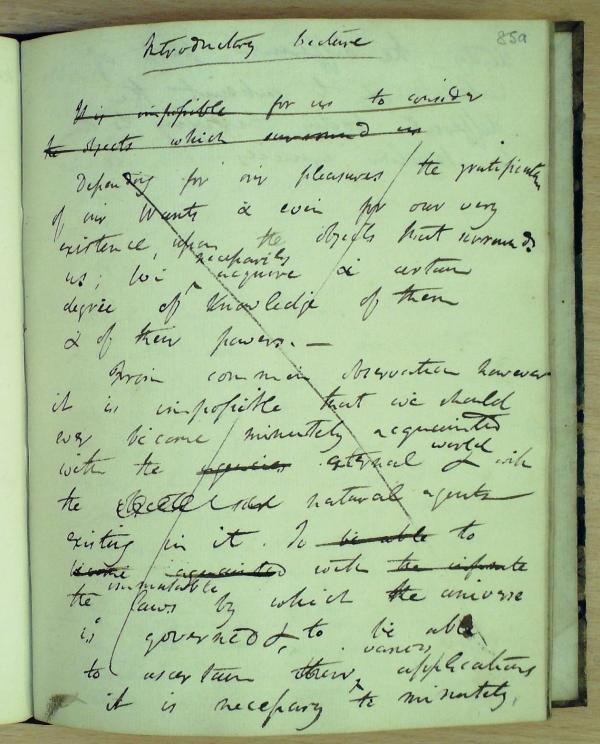 85a
Introductory Lecture
It is impossible for us to consider
the objects which surround us
Depending for our pleasures / the gratification
of our Wants & even for our very
existence, upon the objects that surrounds
necessarily
us; We ^ acquire a certain
degree of Knowledge of them
& of their powers. —
From common observation however
it is impossible that we should
ever become minutely acquainted
world
with the agencies external & with
the natural agents
existing in it. To be able to
become acquainted with the infinite
immutable
the laws by which the universe
is governed &, to be able
various
to ascertain their ^ applications
it is necessary to minutely